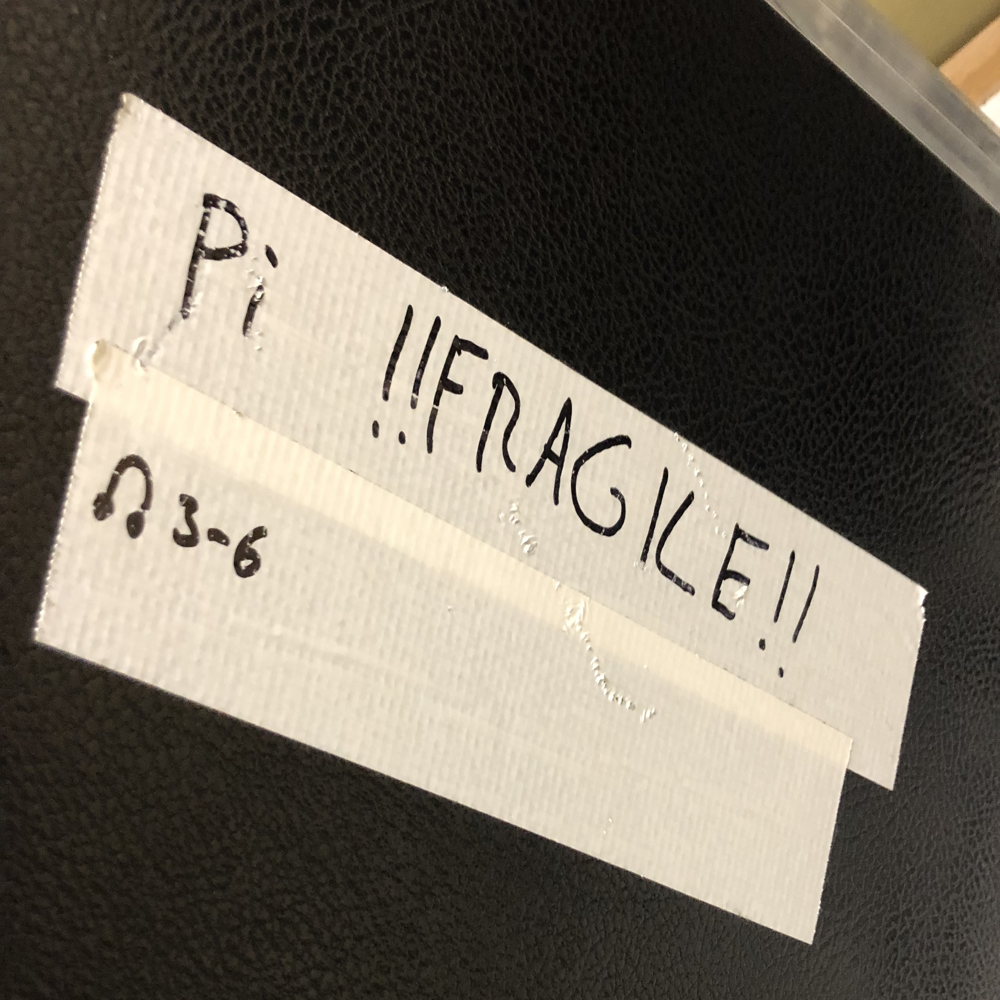 Pi
!!FRAGILE!!
🎧 3-6